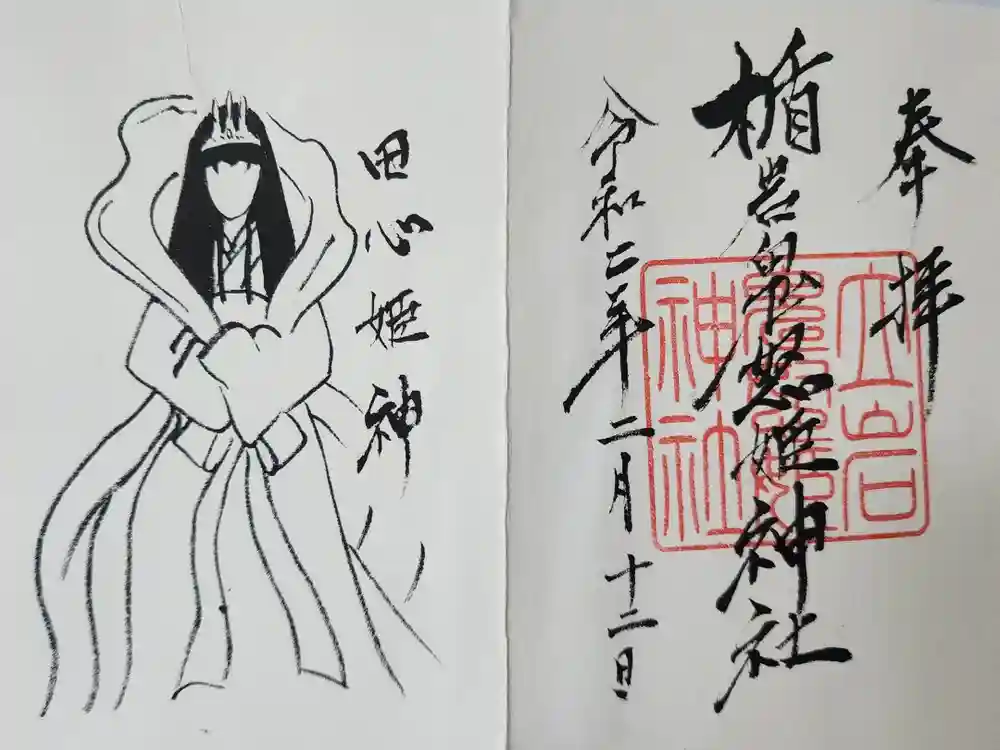 奉拝
楯岩鬼怒姫神社
令和二年二月十二日
立岩
神社
田心姫神